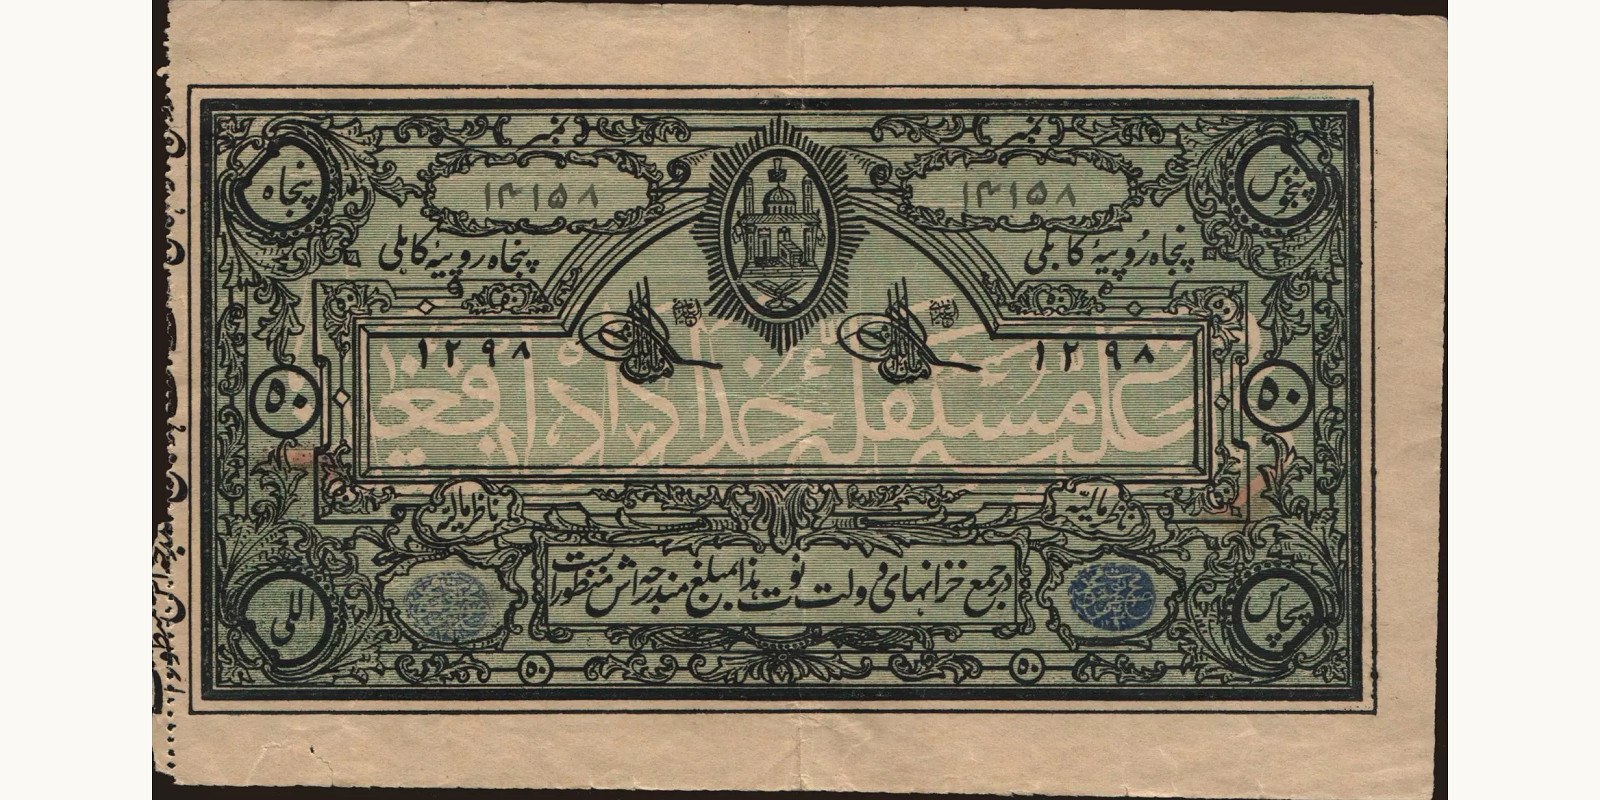 نمبر نمبر
پنجوس ۱۴۱۵۸ ۱۴۱۵۸ پنجاه
پنجاه رُوپیۀ کابلی پنجاه روپیۀ کابلی
۱۲۹۸ ۱۲۹۸
۵۰ علیه مستقلۀ خداداد افغا ۵۰
ناظر مالیّه ناظر مالیّه
در جمع خزانهای دولت نوت هذا مبلغ مندرجه اش منظور است
پچاس اللی
۵۰ ۵۰